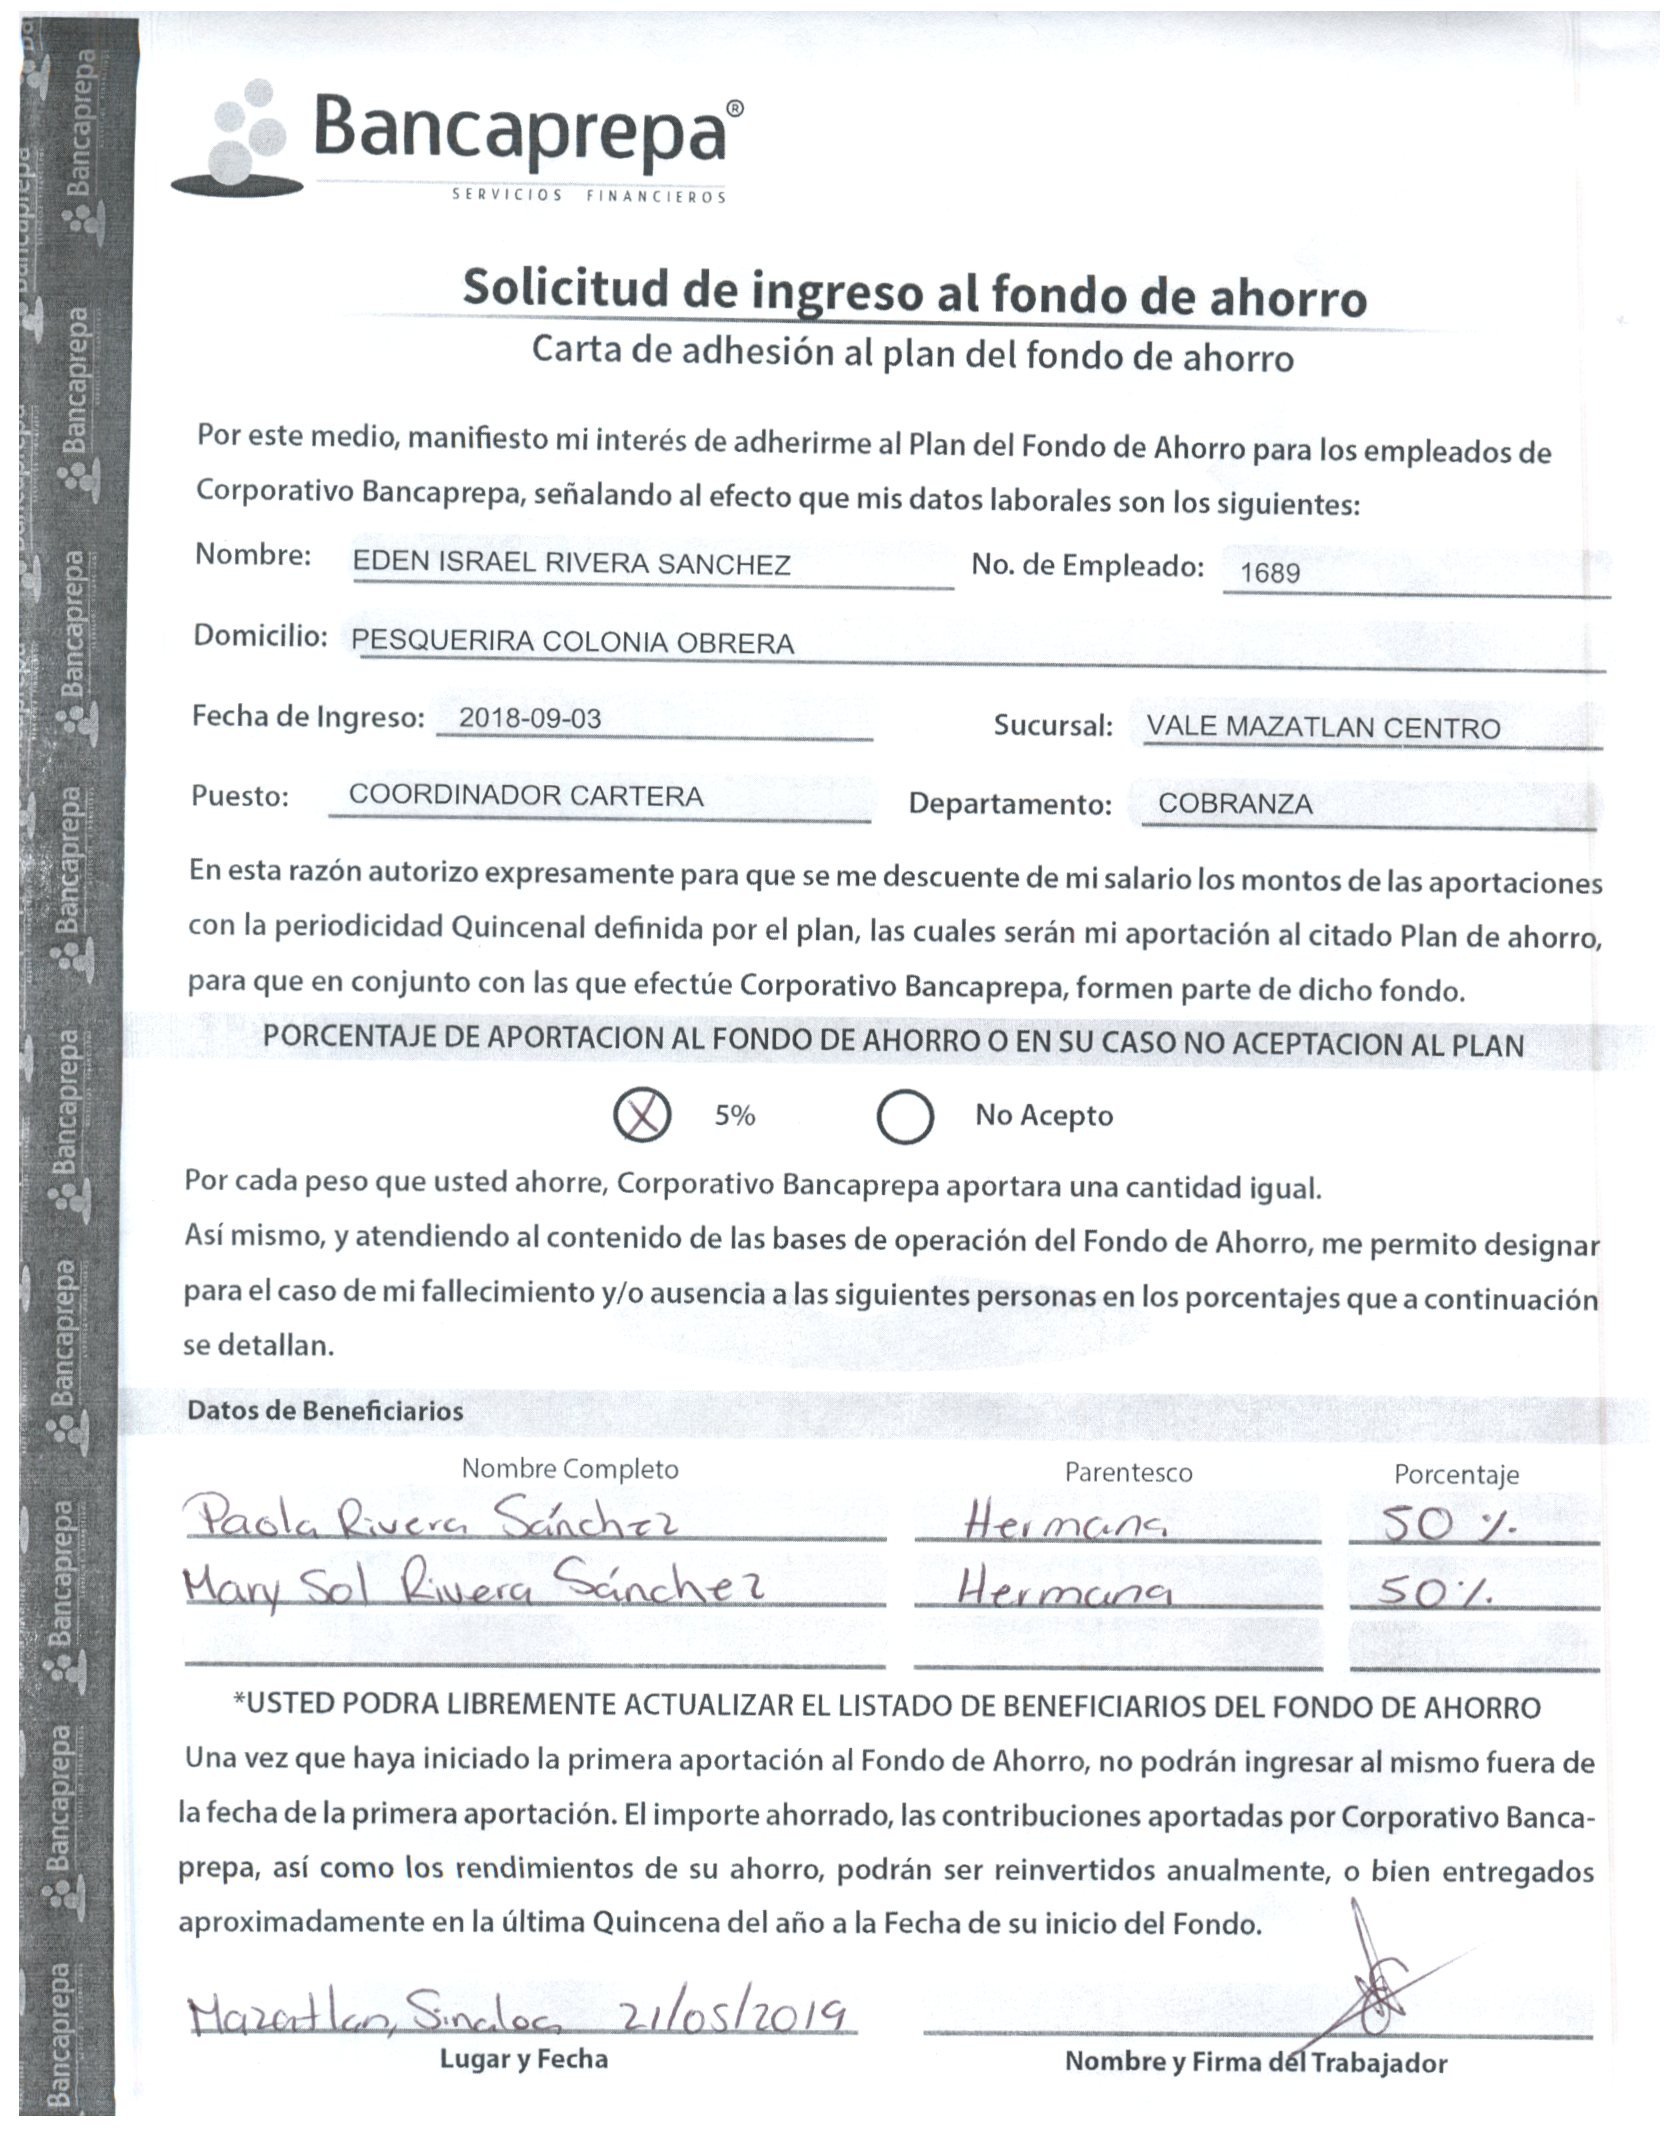 Bancaprepa®
SERVICIOS FINANCIEROS
Solicitud de ingreso al fondo de ahorro
Carta de adhesión al plan del fondo de ahorro
Por este medio, manifiesto mi interés de adherirme al Plan del Fondo de Ahorro para los empleados de
Corporativo Bancaprepa, señalando al efecto que mis datos laborales son los siguientes:
Nombre: EDEN ISRAEL RIVERA SANCHEZ No. de Empleado: 1689
Domicilio: PESQUERIRA COLONIA OBRERA
Fecha de Ingreso: 2018-09-03 Sucursal: VALE MAZATLAN CENTRO
Puesto: COORDINADOR CARTERA Departamento: COBRANZA
En esta razón autorizo expresamente para que se me descuente de mi salario los montos de las aportaciones
con la periodicidad Quincenal definida por el plan, las cuales serán mi aportación al citado Plan de ahorro,
para que en conjunto con las que efectúe Corporativo Bancaprepa, formen parte de dicho fondo.
PORCENTAJE DE APORTACION AL FONDO DE AHORRO O EN SU CASO NO ACEPTACION AL PLAN
X 5% No Acepto
Por cada peso que usted ahorre, Corporativo Bancaprepa aportara una cantidad igual.
Así mismo, y atendiendo al contenido de las bases de operación del Fondo de Ahorro, me permito designar
para el caso de mi fallecimiento y/o ausencia a las siguientes personas en los porcentajes que a continuación
se detallan.
Datos de Beneficiarios
Nombre Completo Parentesco Porcentaje
Paola Rivera Sánchez Hermana 50 %
Mary Sol Rivera Sánchez Hermana 50%
*USTED PODRA LIBREMENTE ACTUALIZAR EL LISTADO DE BENEFICIARIOS DEL FONDO DE AHORRO
Una vez que haya iniciado la primera aportación al Fondo de Ahorro, no podrán ingresar al mismo fuera de
la fecha de la primera aportación. El importe ahorrado, las contribuciones aportadas por Corporativo Banca-
prepa, así como los rendimientos de su ahorro, podrán ser reinvertidos anualmente, o bien entregados
aproximadamente en la última Quincena del año a la Fecha de su inicio del Fondo.
Mazatlan, Sinaloa 21/05/2019
Lugar y Fecha Nombre y Firma del Trabajador
Bancaprepa
Bancaprepa
Bancaprepa
Bancaprepa
Bancaprepa
Bancaprepa
Bancaprepa
Bancaprepa
Bancaprepa